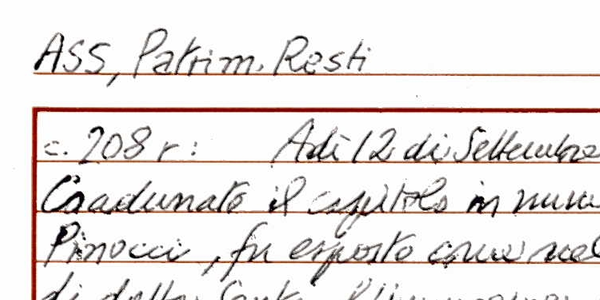 ASS, Patrim. Resti
c. 208 r: Adì 12 di Settembre
Coadunato il capitolo in num
Pinocci, fu esposto come nel
di detto